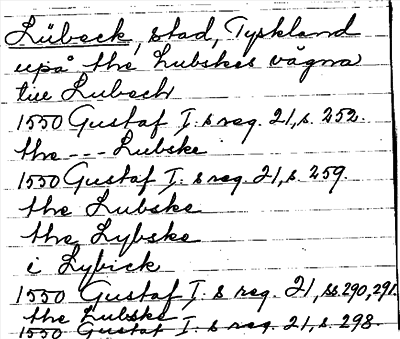 Lübeck, stad, Tyskland
upå the Lubskes vägna
till Lubech
1550 Gustaf I. s reg. 21, s. 252.
the --- Lubske
1550 Gustaf I. s reg. 21, s. 259.
the Lubske
the Lybske
i Lybick
1550 Gustaf I. s reg. 21, ss. 290, 291.
the Lubske
1550 Gustaf I. s reg. 21, s. 298.